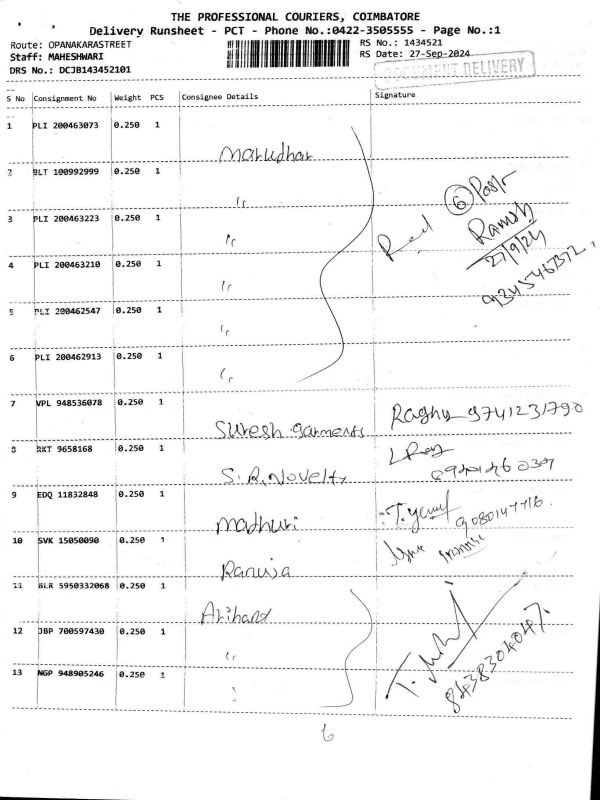 THE PROFESSIONAL COURIERS, COIMBATORE
Delivery Runsheet - PCT - Phone No.:0422-3505555 - Page No.:1
Route: OPANAKARASTREET RS No.: 1434521
Staff: MAHESHWARI RS Date: 27-Sep-2024
DRS No.: DCJB143452101
DOCUMENT DELIVERY
S No Consignment No Weight PCS Consignee Details Signature
1 PLI 200463073 0.250 1 Marudhar
2 BLT 100992999 0.250 1 "
3 PLI 200463223 0.250 1 "
4 PLI 200463210 0.250 1 "
5 PLI 200462547 0.250 1 "
6 PLI 200462913 0.250 1 "
Recd 6 Post
Ramesh
27/9/24
7 VPL 948536078 0.250 1 Suresh garments Raghu 9741231790
8 RKT 9658168 0.250 1 S.R.Novelty
9 EDQ 11832848 0.250 1 Madhuri
10 SVK 15050090 0.250 1
11 BLR 5950332068 0.250 1 Arihant
12 JBP 700597430 0.250 1 "
13 NGP 948905246 0.250 1 "
8438304047
6